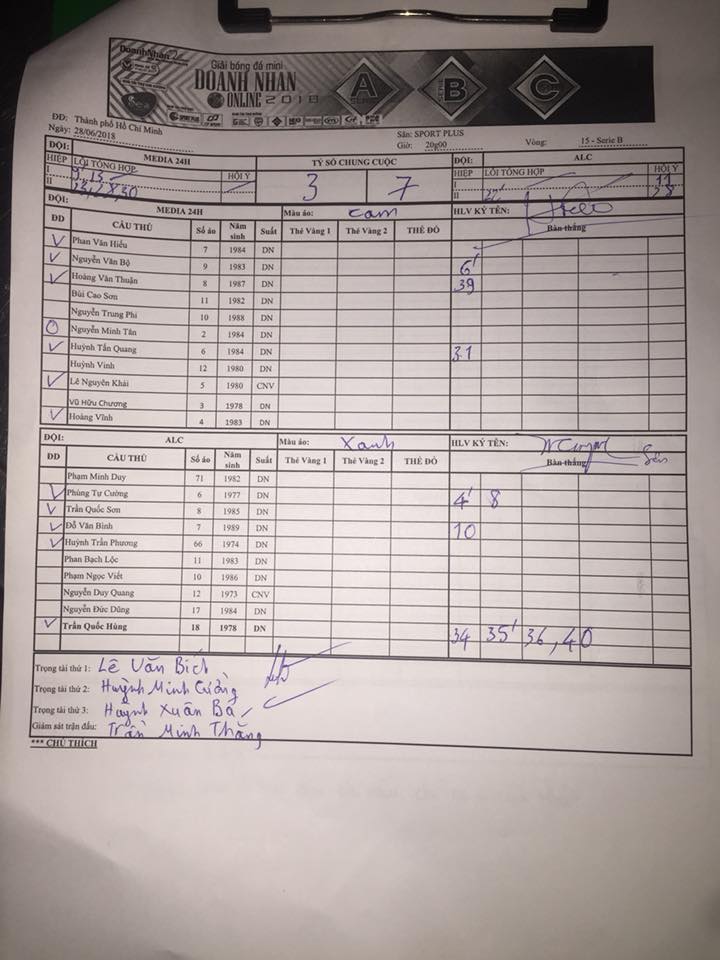 DoanhNhan
Giải bóng đá mini
DOANH NHAN
ONLINE 2018
A
B
SERIE
C
ĐĐ: Thành phố Hồ Chí Minh
Ngày: 28/06/2018
Sân: SPORT PLUS
Giờ: 20g00 Vòng: 15 - Serie B
ĐỘI: MEDIA 24H TỶ SỐ CHUNG CUỘC ĐỘI: ALC
HIỆP LỖI TỔNG HỢP HỘI Ý 3 7 HIỆP LỖI TỔNG HỢP HỘI Ý
I I 11
II II 28
ĐỘI: MEDIA 24H Màu áo: Cam HLV KÝ TÊN:
ĐD CẦU THỦ Số áo Năm sinh Suất Thẻ Vàng 1 Thẻ Vàng 2 THẺ ĐỎ Bàn thắng
Phan Văn Hiếu 7 1984 DN
Nguyễn Văn Bộ 9 1983 DN 6'
Hoàng Văn Thuận 8 1987 DN 39
Bùi Cao Sơn 11 1982 DN
Nguyễn Trung Phi 10 1988 DN
Nguyễn Minh Tân 2 1984 DN
Huỳnh Tấn Quang 6 1984 DN 31
Huỳnh Vinh 12 1980 DN
Lê Nguyên Khải 5 1980 CNV
Vũ Hữu Chương 3 1978 DN
Hoàng Vĩnh 4 1983 DN
ĐỘI: ALC Màu áo: Xanh HLV KÝ TÊN:
ĐD CẦU THỦ Số áo Năm sinh Suất Thẻ Vàng 1 Thẻ Vàng 2 THẺ ĐỎ Bàn thắng
Phạm Minh Duy 71 1982 DN
Phùng Tự Cường 6 1977 DN 4' 8
Trần Quốc Sơn 8 1985 DN
Đỗ Văn Bình 7 1989 DN 10
Huỳnh Trần Phương 66 1974 DN
Phan Bạch Lộc 11 1983 DN
Phạm Ngọc Viết 10 1986 DN
Nguyễn Duy Quang 12 1973 CNV
Nguyễn Đức Dũng 17 1984 DN
Trần Quốc Hùng 18 1978 DN 34 35' 36, 40
Trọng tài thứ 1: Lê Văn Bích
Trọng tài thứ 2: Huỳnh Minh Cường
Trọng tài thứ 3: Huỳnh Xuân Bá
Giám sát trận đấu: Trần Minh Thắng
*** CHÚ THÍCH